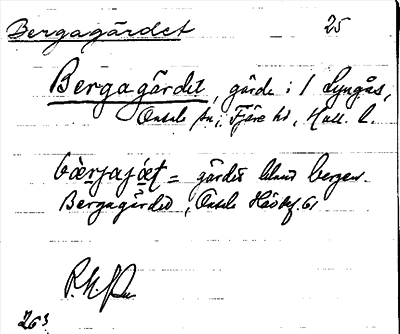 Bergagärdet 25
Bergagärdet, gärde i 1 Lyngås,
Onsala sn, Fjäre hd, Hall. l.
bærjajæt = gärdet bland bergen.
Bergagärdet, Onsala
263